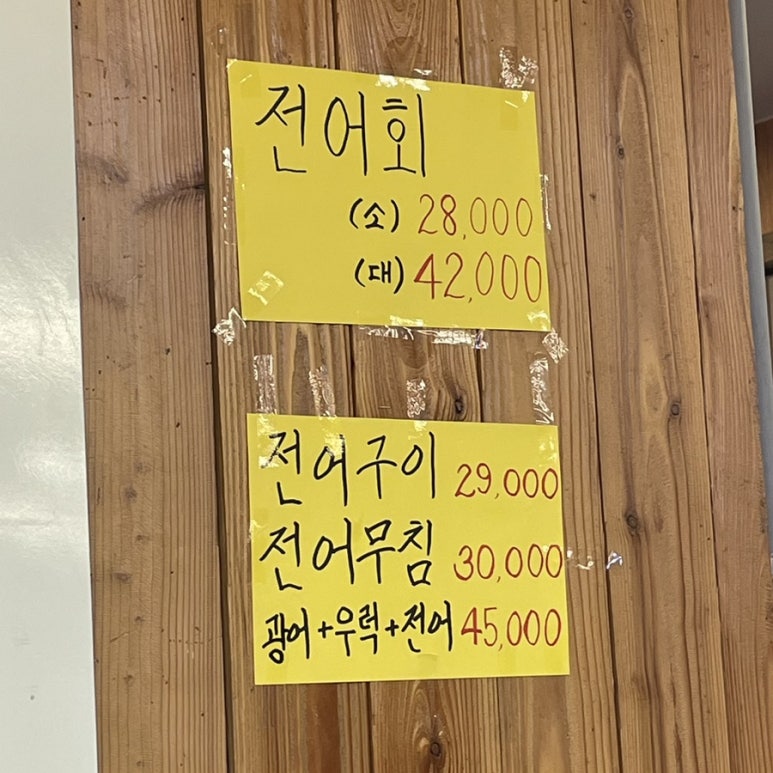 전어회
(소) 28,000
(대) 42,000
전어구이 29,000
전어무침 30,000
광어+우럭+전어 45,000